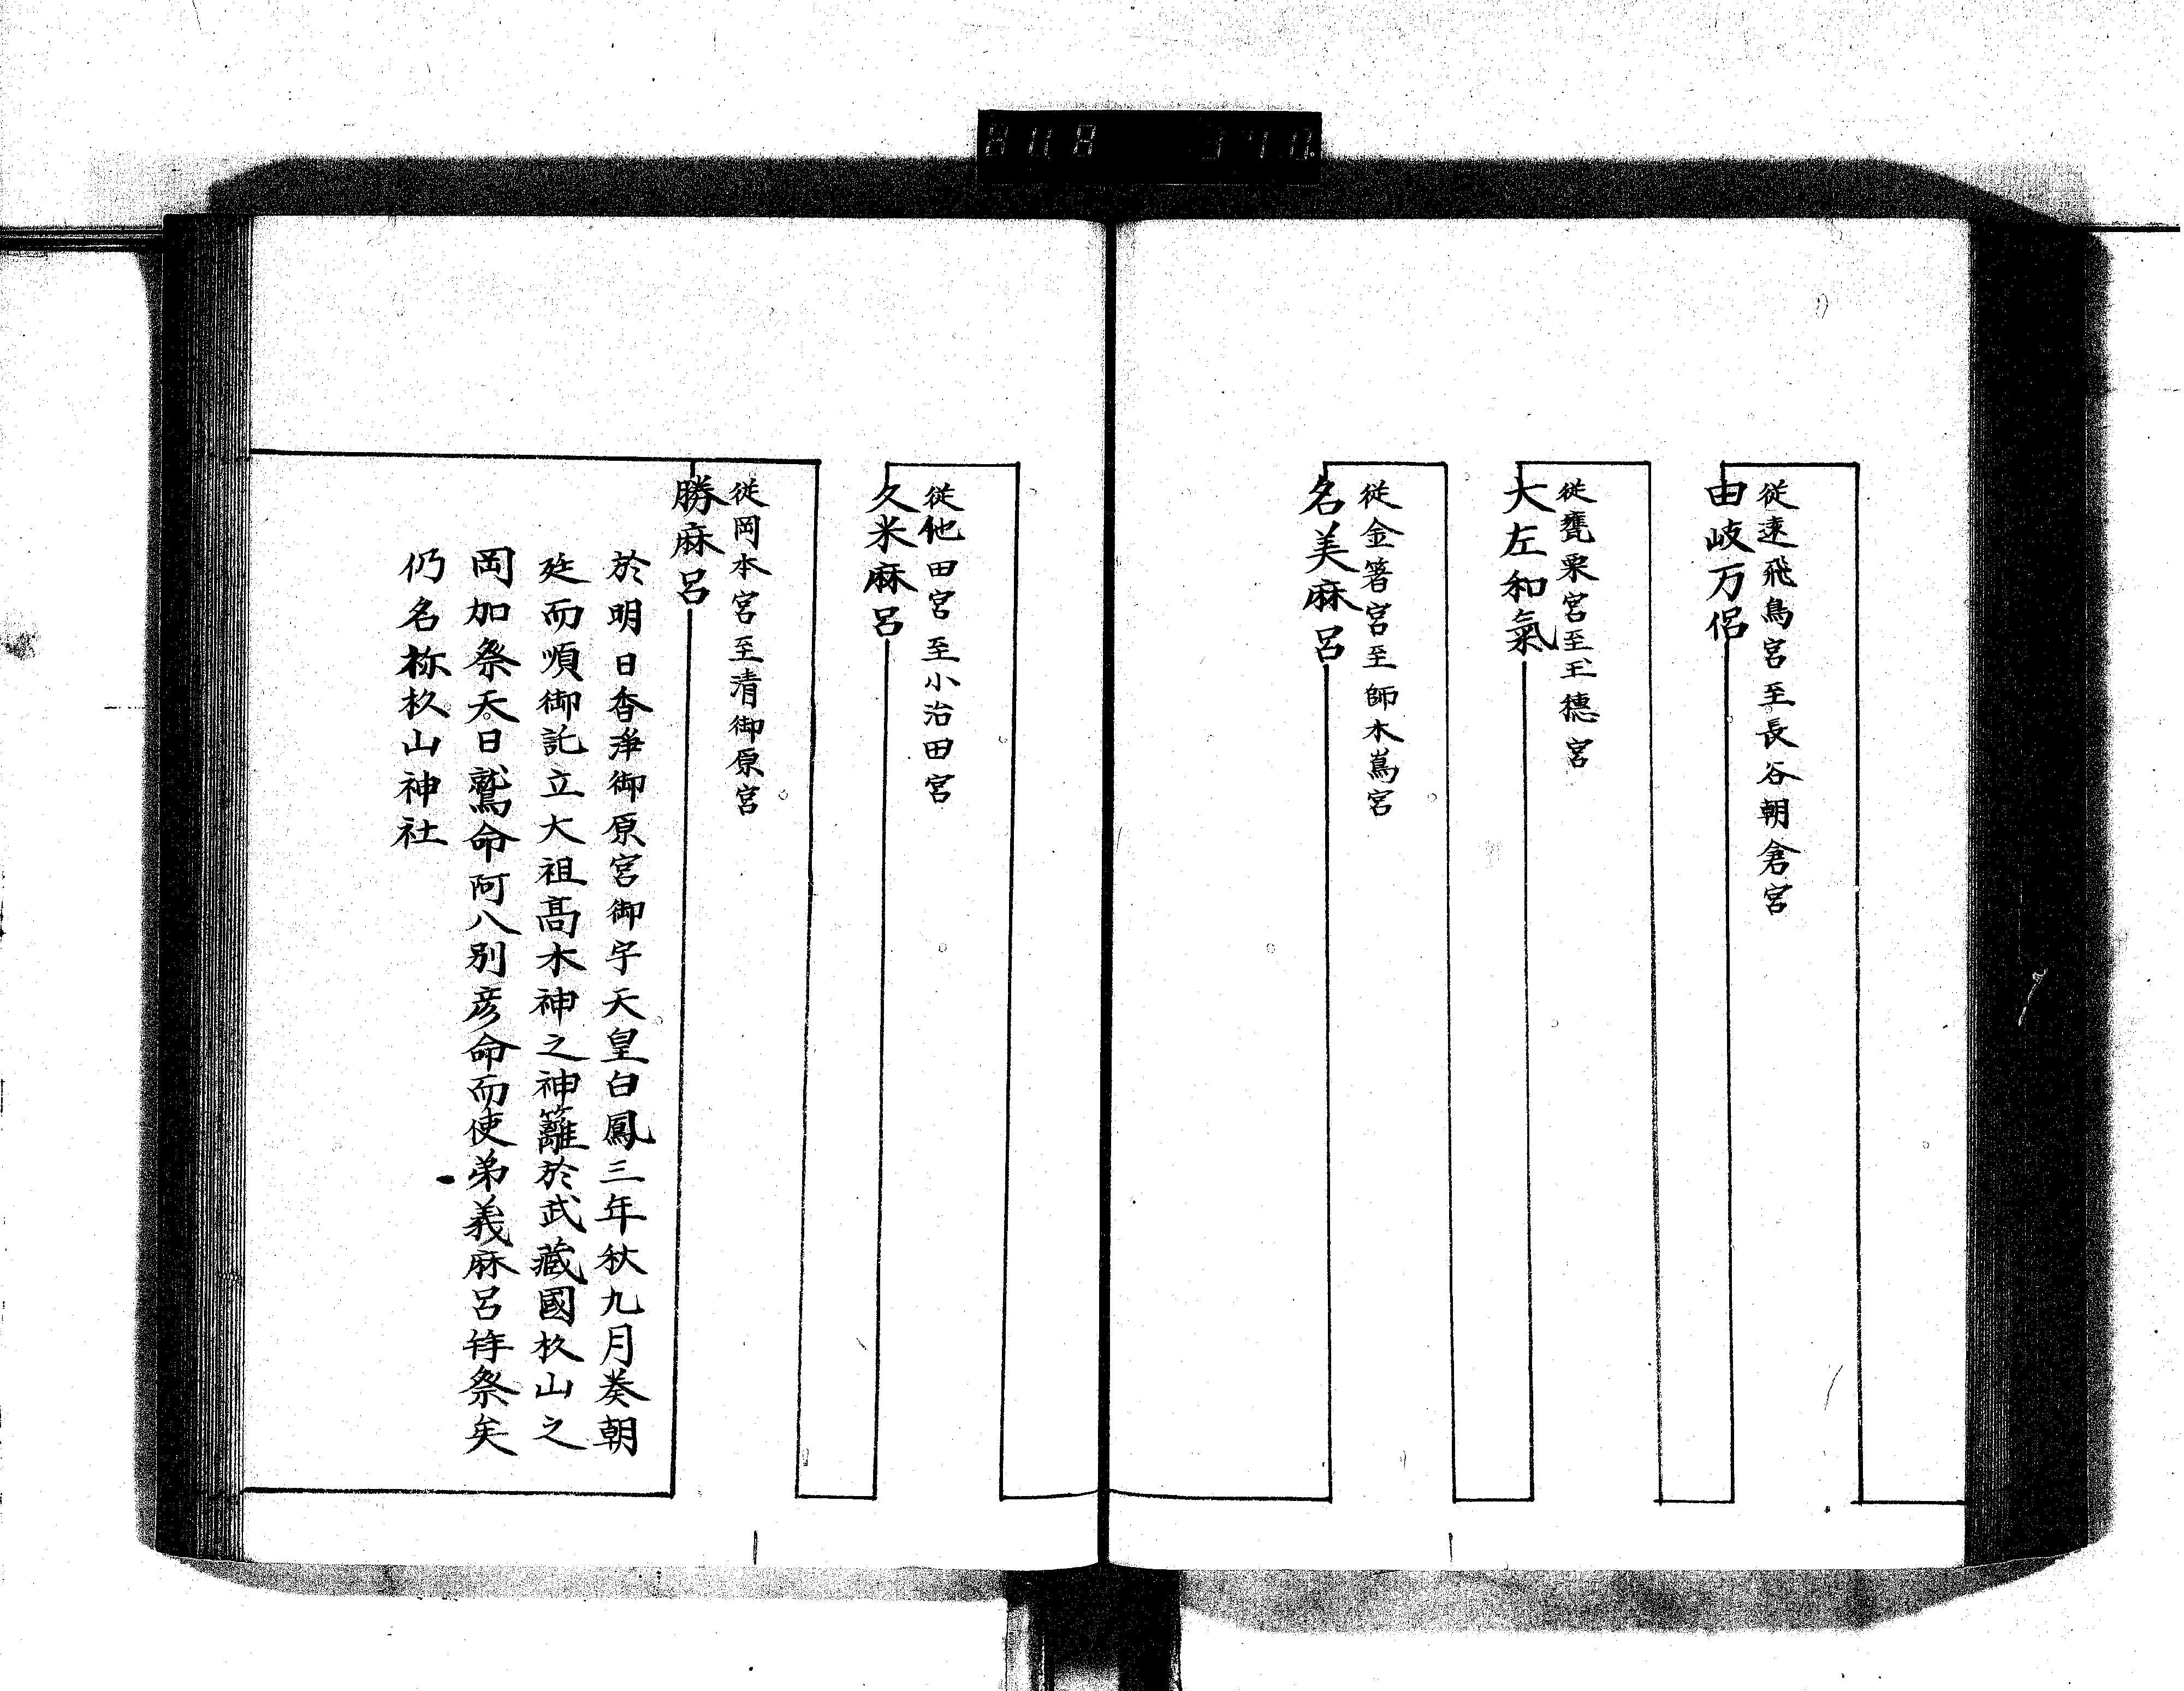 従遠飛鳥宮至長谷朝倉宮
由岐万侶
従甕栗宮至玉穂宮
大左和氣
従金箸宮至師木嶌宮
名美麻呂
従他田宮至小治田宮
久米麻呂
従岡本宮至清御原宮
勝麻呂
於明日香浄御原宮御宇天皇白鳳三年秋九月葵朝
廷而順御託立大祖髙木神之神籬於武藏國杦山之
岡加祭天日鷲命阿八別彦命而使弟義麻呂祭矣
仍名称杦山神社